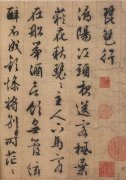 琵琶行
潯陽江頭夜送客楓葉
荻花秋瑟々主人下馬客
在船舉酒欲飲無管弦
醉不成歡慘將別々時茫